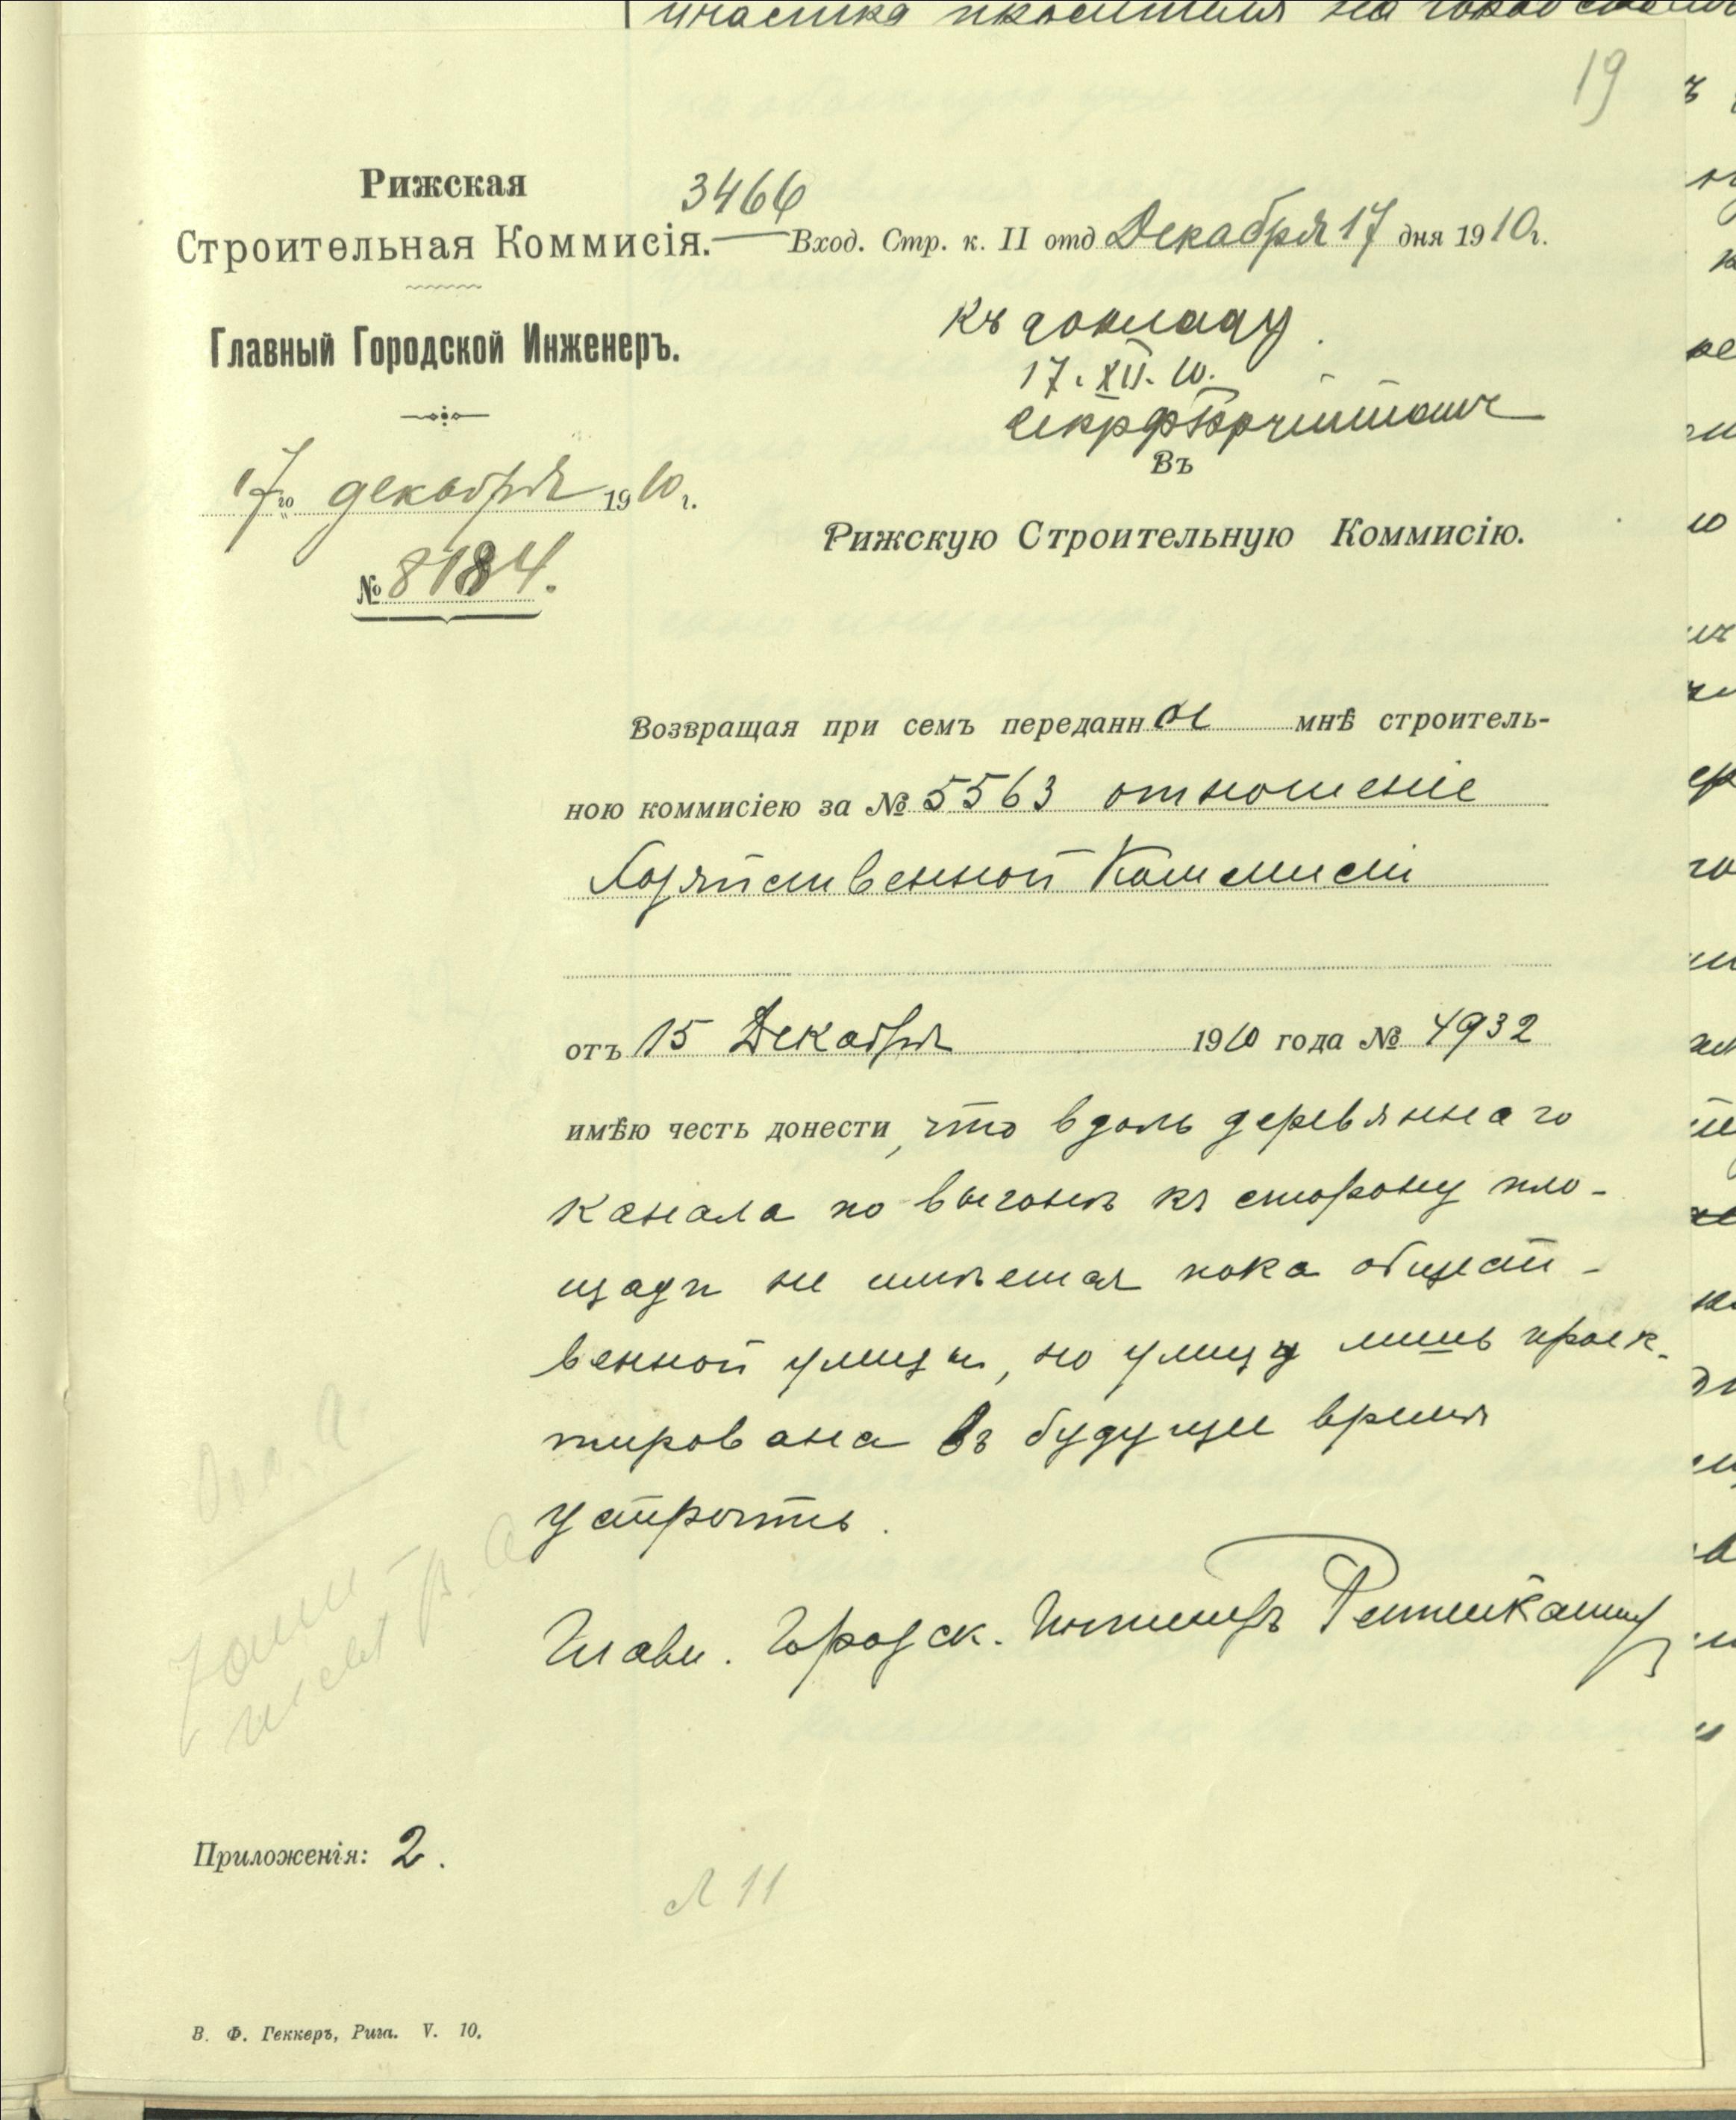 19
Рижская
Строительная Коммисія.
3466
Вход. Стр. к. II отд Декабря 17 дня 1910 г.
Главный Городской Инженеръ.
Къ докладу.
17. XII. 10.
17го декабря 1910 г.
№ 8184.
Въ
Рижскую Строительную Коммисію.
Возвращая при семъ переданное мнѣ строитель-
ною коммисіею за № 5563 отношеніе
Хозяйственной Коммисіи
отъ 15 Декабря 1910 года № 4932
имѣю честь донести, что вдоль деревяннаго
канала по выгонѣ къ сторону пло-
щади не имѣется пока общест-
венной улицы, но улицу лишь проек-
тирована въ будущее время
устроить.
Главн. Городск. Инженеръ
Приложенія: 2.
Л 11
В. Ф. Геккеръ, Рига. V. 10.